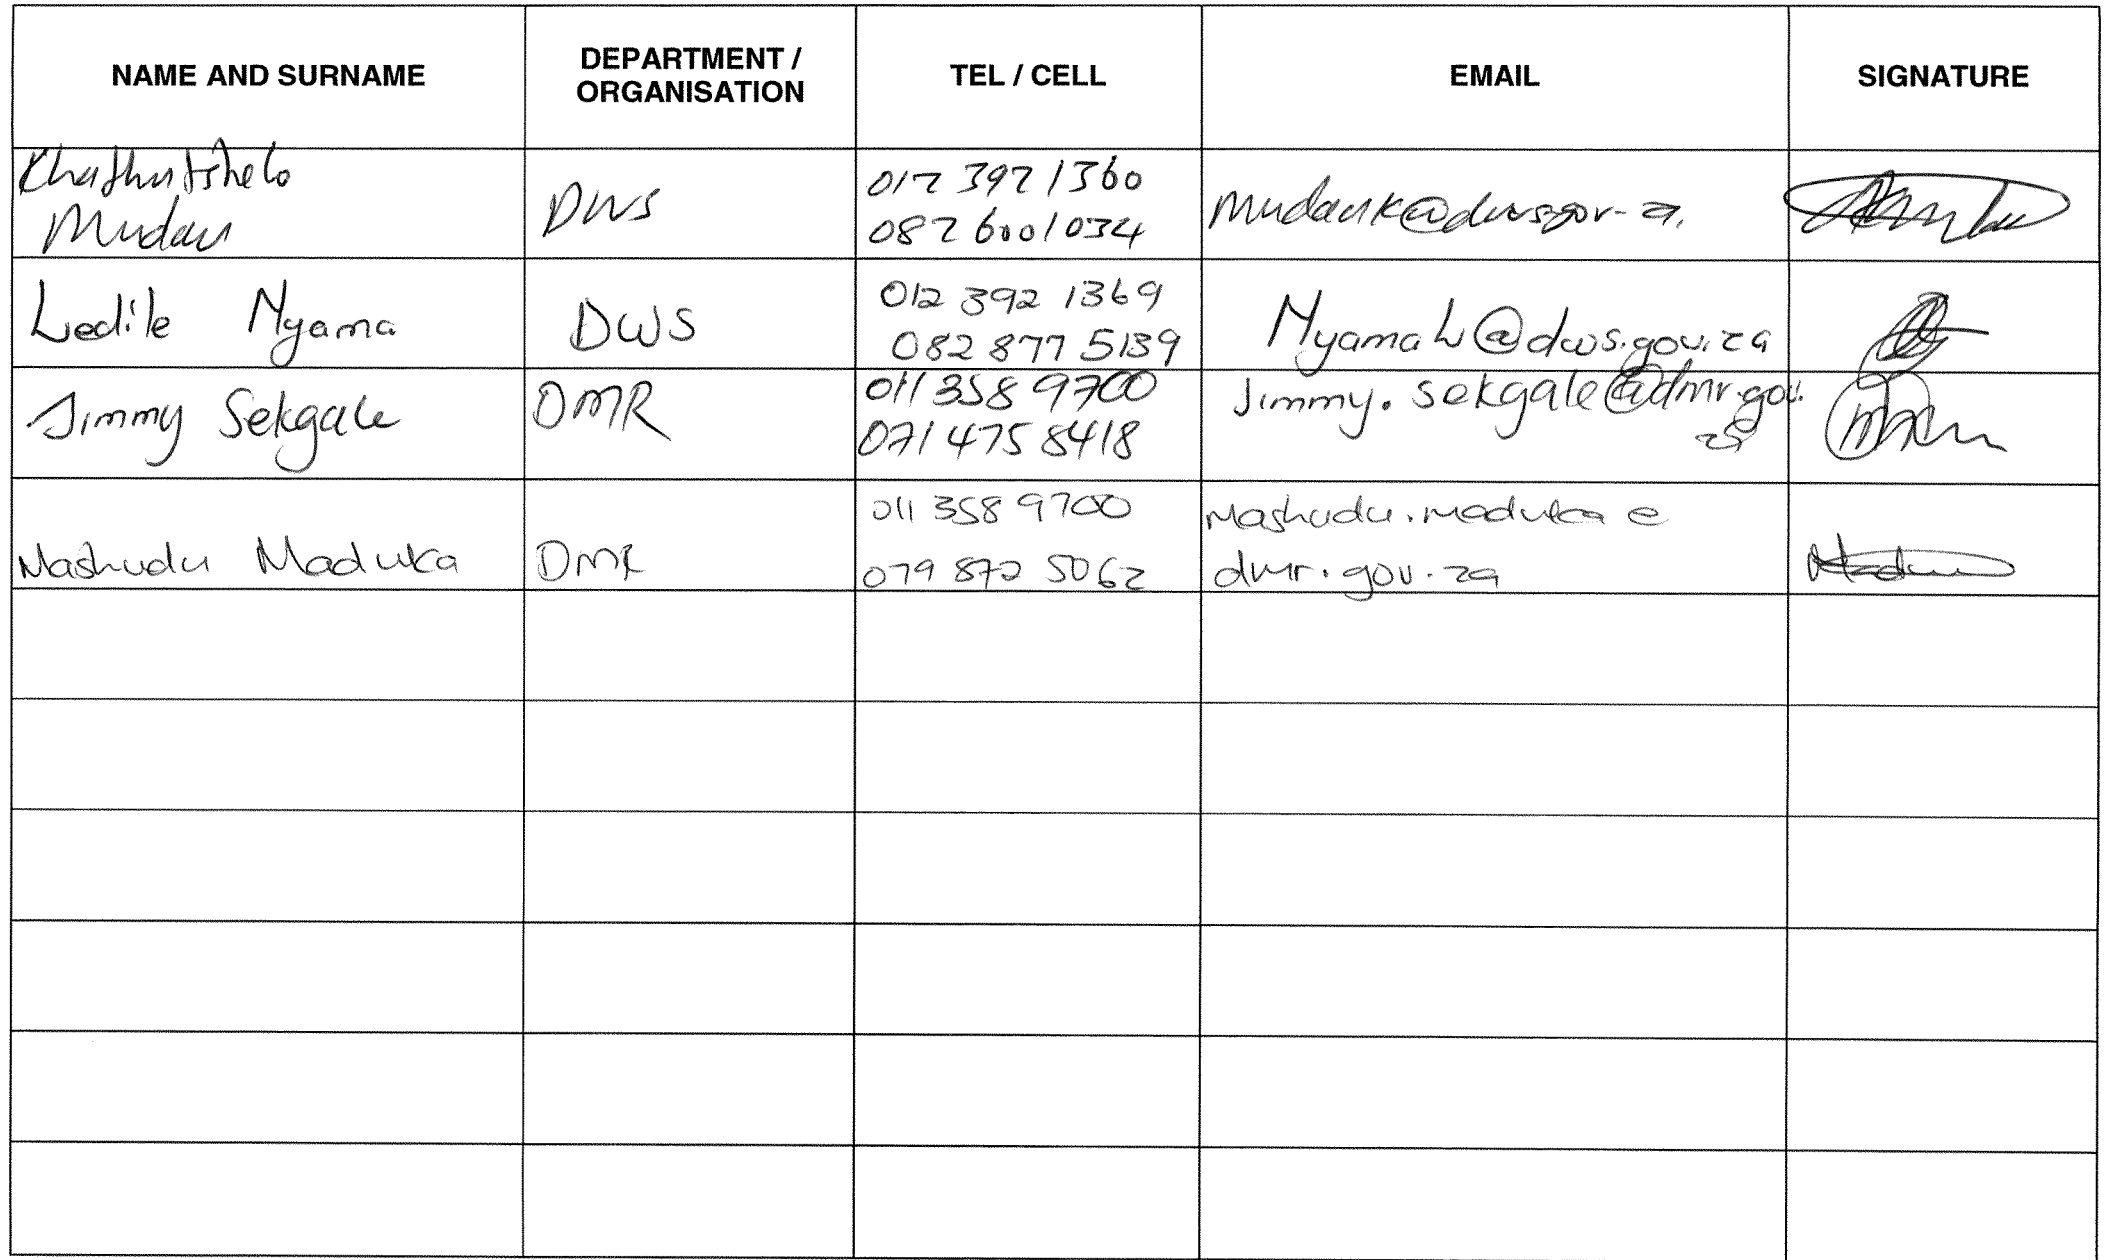 NAME AND SURNAME
DEPARTMENT /
ORGANISATION
TEL / CELL
EMAIL
SIGNATURE
Khathutshelo
Mudau
DWS
012 392 1360
082 6001034
mudauk@dws.gov.za.
Ledile Nyama
DWS
012 392 1369
082 877 5139
NyamaL@dws.gov.za
Jimmy Sekgale
DMR
011 358 9700
071 475 8418
Jimmy.sekgale@dmr.gov.
za
Mashudu Maduka
DMR
011 358 9700
079 872 5062
Mashudu.maduka@
dmr.gov.za